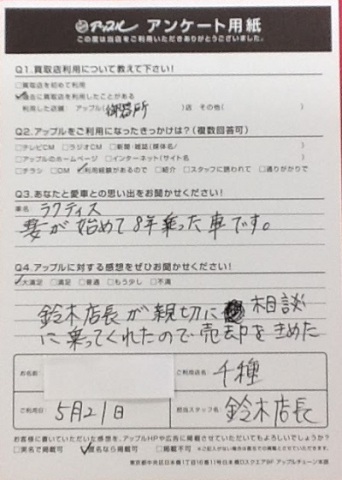 アップル アンケート用紙
この度は当店をご利用いただきありがとうございました。
Q1.買取店利用について教えて下さい!
□買取店を初めて利用
☑過去に買取店を利用したことがある
利用した店舗: アップル(御器所)店 その他( )
Q2.アップルをご利用になったきっかけは?(複数回答可)
□テレビCM □ラジオCM □新聞・雑誌(媒体名/ )
□アップルのホームページ □インターネット(サイト名 )
□チラシ □DM ☑利用経験があるので □紹介 □スタッフに誘われて □通りがかりで
Q3.あなたと愛車との思い出をお聞かせください!
車名: ラクティス
妻が始めて8年乗った車です。
Q4.アップルに対する感想をぜひお聞かせください!
☑大満足 □満足 □普通 □もう少し □不満
鈴木店長が親切に 相談
に乗ってくれたので売却をきめた
お名前: ご利用店名: 千種
ご利用日: 5月21日 担当スタッフ名: 鈴木店長
お客様に書いていただいた感想を、アップルHPや広告に掲載させていただいてもよろしいでしょうか?
□実名で掲載可 ☑匿名なら掲載可 □掲載不可 ※ご記入がない場合は匿名での掲載とさせていただきます。
東京都中央区日本橋1丁目16番11号日本橋Dスクエア5F アップルチェーン本部